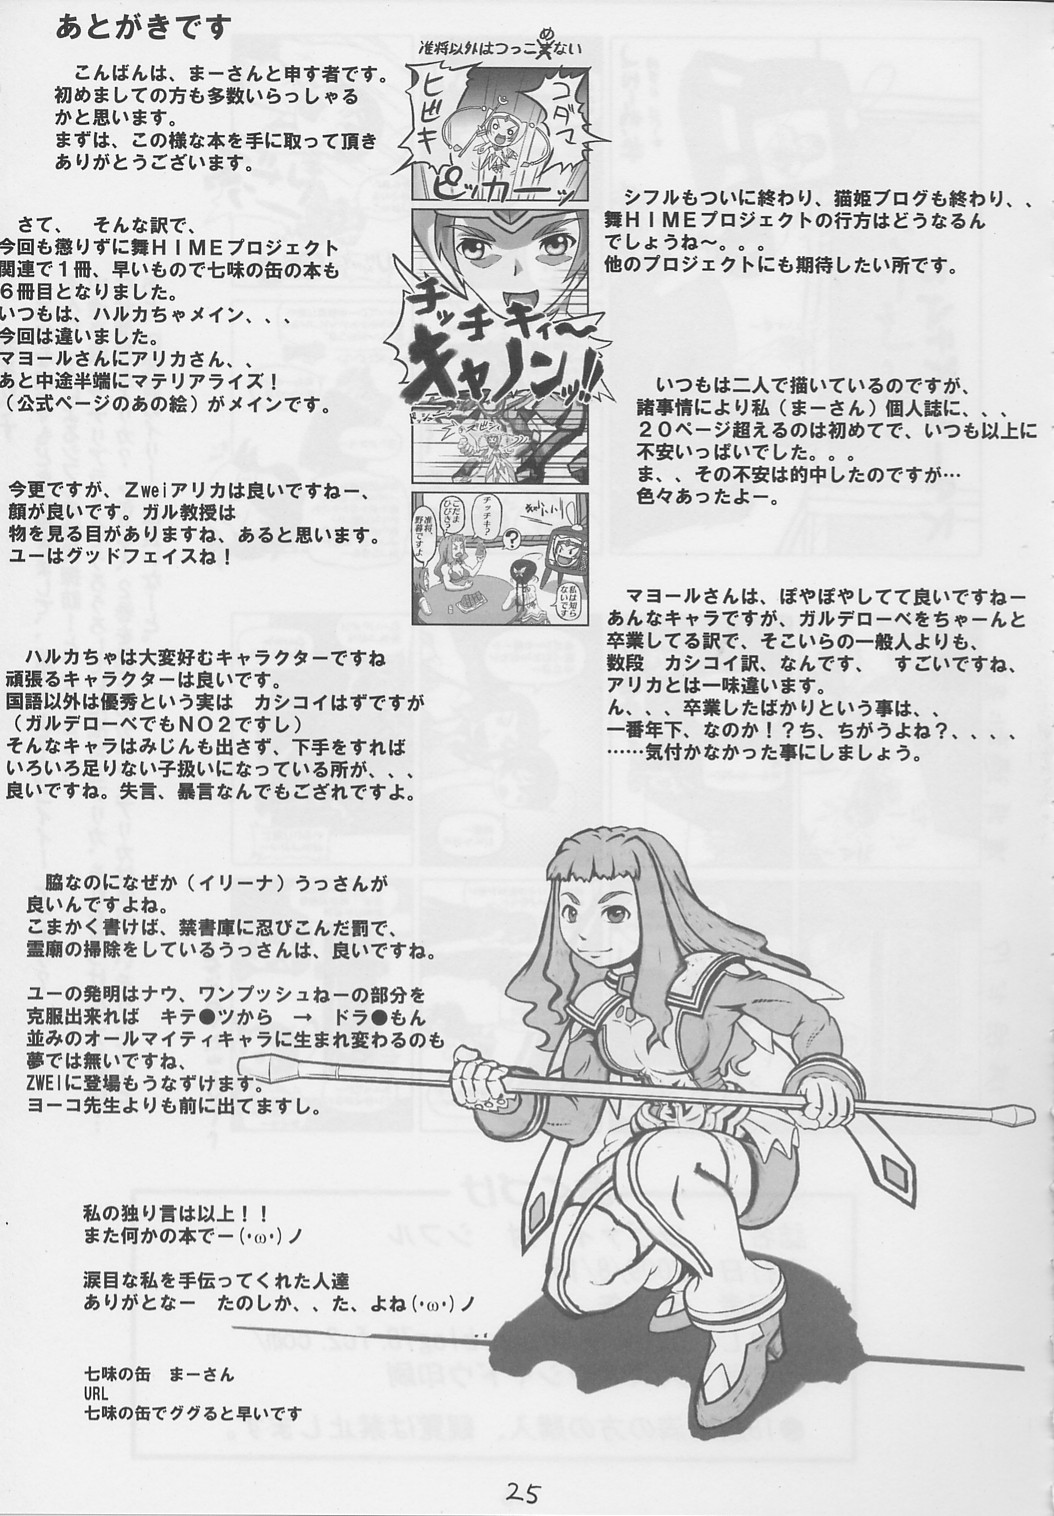 あとがきです
こんばんは、まーさんと申す者です。
初めましての方も多数いらっしゃる
かと思います。
まずは、この様な本を手に取って頂き
ありがとうございます。
さて、　そんな訳で、
今回も懲りずに舞ＨＩＭＥプロジェクト
関連で１冊、早いもので七味の缶の本も
６冊目となりました。
いつもは、ハルカちゃメイン、、、
今回は違いました。
マヨールさんにアリカさん、、
あと中途半端にマテリアライズ！
（公式ページのあの絵）がメインです。
今更ですが、Ｚｗｅｉアリカは良いですねー、
顔が良いです。ガル教授は
物を見る目がありますね、あると思います。
ユーはグッドフェイスね！
ハルカちゃは大変好むキャラクターですね
頑張るキャラクターは良いです。
国語以外は優秀という実は　カシコイはずですが
（ガルデローベでもＮＯ２ですし）
そんなキャラはみじんも出さず、下手をすれば
いろいろ足りない子扱いになっている所が、、、
良いですね。失言、暴言なんでもござれですよ。
脇なのになぜか（イリーナ）うっさんが
良いんですよね。
こまかく書けば、禁書庫に忍びこんだ罰で、
霊廟の掃除をしているうっさんは、良いですね。
ユーの発明はナウ、ワンプッシュねーの部分を
克服出来れば　キテ●ツから　→　ドラ●もん
並みのオールマイティキャラに生まれ変わるのも
夢では無いですね、
ZWEIに登場もうなずけます。
ヨーコ先生よりも前に出てますし。
私の独り言は以上！！
また何かの本でー(･ω･)ノ
涙目な私を手伝ってくれた人達
ありがとなー　たのしか、、た、よね(･ω･)ノ
七味の缶　まーさん
URL
七味の缶でググると早いです
准将以外はつっこめない
コダマ
ヒビキ
ピッカーーッ
チッチキィ〜
キャノンッ!!
チッチキ？
こだま
ひびき？
准将、
野暮ですよ
？
私は知ら
ないです
シフルもついに終わり、猫姫ブログも終わり、、
舞ＨＩＭＥプロジェクトの行方はどうなるん
でしょうね〜。。。
他のプロジェクトにも期待したい所です。
いつもは二人で描いているのですが、
諸事情により私（まーさん）個人誌に、、、
２０ページ超えるのは初めてで、いつも以上に
不安いっぱいでした。。。
ま、、その不安は的中したのですが…
色々あったよー。
マヨールさんは、ぽやぽやしてて良いですねー
あんなキャラですが、ガルデローベをちゃーんと
卒業してる訳で、そこいらの一般人よりも、
数段　カシコイ訳、なんです、　すごいですね、
アリカとは一味違います。
ん、、、卒業したばかりという事は、、
一番年下、なのか！？ち、ちがうよね？、、、、
……気付かなかった事にしましょう。
25